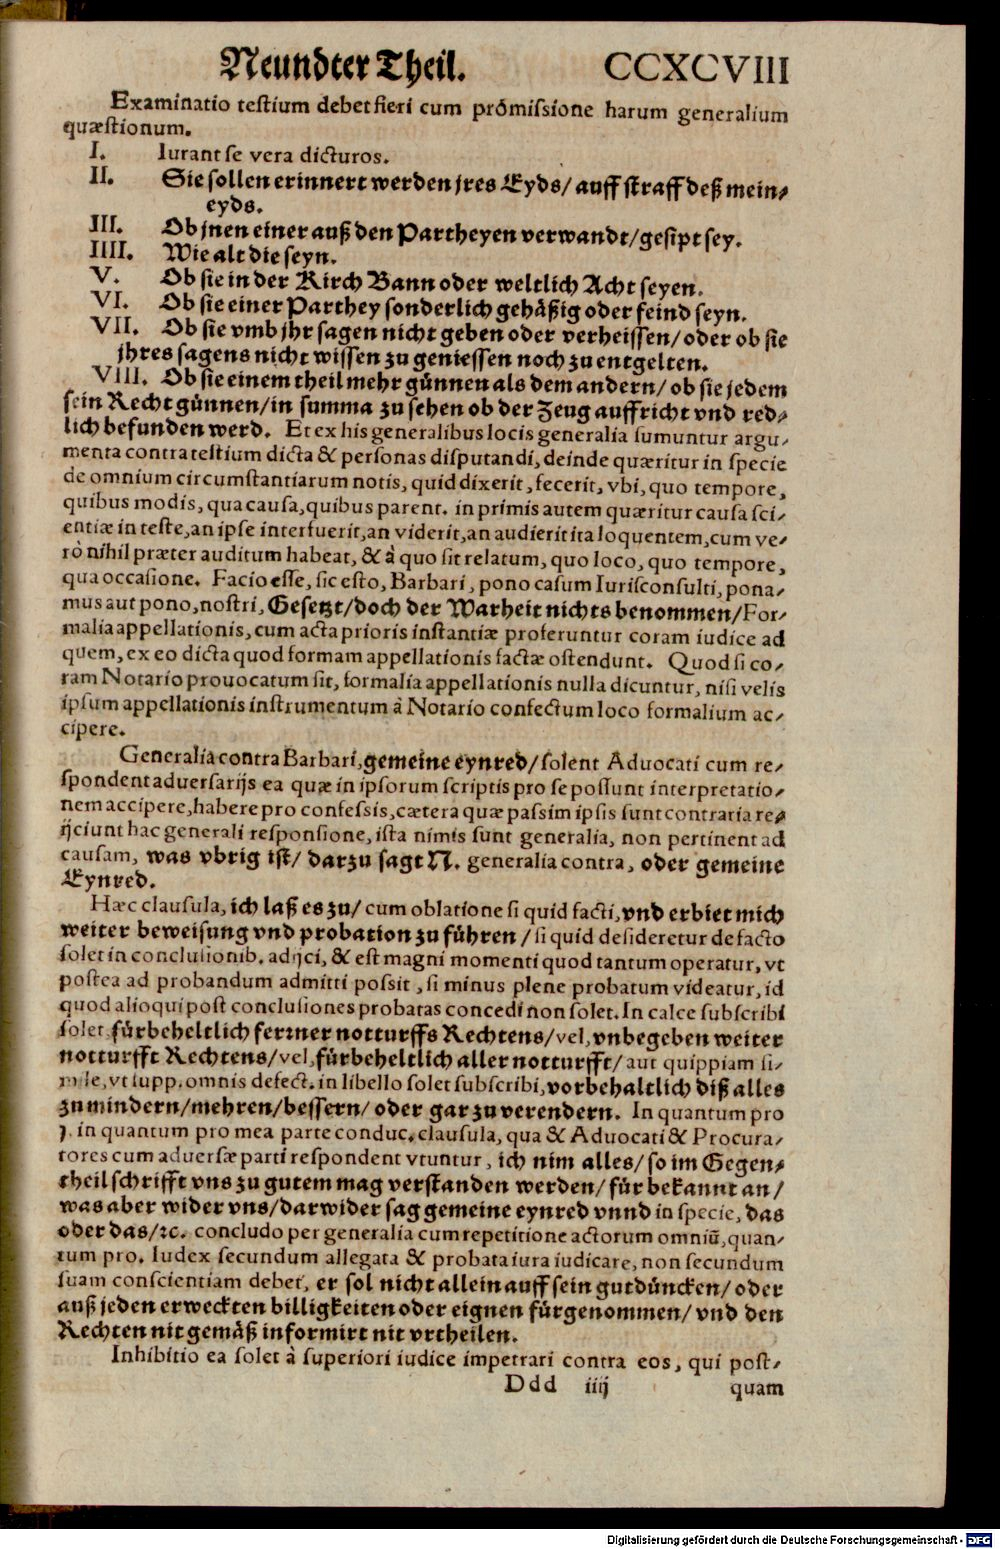 Neundter Theil. CCXCVIII
Examinatio testium debet fieri cum prōmissione harum generalium
quæstionum.
I. Iurant se vera dicturos.
II. Sie sollen erinnert werden jres Eyds/ auff straff deß mein⸗
eyds.
III. Ob jnen einer auß den Partheyen verwandt/gesipt sey.
IIII. Wie alt die seyn.
V. Ob sie in der Kirch Bann oder weltlich Acht seyen.
VI. Ob sie einer Parthey sonderlich gehäßig oder feind seyn.
VII. Ob sie vmb jhr sagen nicht geben oder verheissen/ oder ob sie
jhres sagens nicht wissen zu geniessen noch zu entgelten.
VIII. Ob sie einem theil mehr günnen als dem andern/ ob sie jedem
sein Recht günnen/in summa zu sehen ob der Zeug auffricht vnd red⸗
lich befunden werd. Et ex his generalibus locis generalia sumuntur argu⸗
menta contra testium dicta & personas disputandi, deinde quæritur in specie
de omnium circumstantiarum notis, quid dixerit, fecerit, vbi, quo tempore,
quibus modis, qua causa, quibus parent. in primis autem quæritur causa sci⸗
entiæ in teste, an ipse interfuerit, an viderit, an audierit ita loquentem, cum ve⸗
rò nihil præter auditum habeat, & à quo sit relatum, quo loco, quo tempore,
qua occasione. Facio esse, sic esto, Barbari, pono casum Iurisconsulti, pona⸗
mus aut pono, nostri, Gesetzt/doch der Warheit nichts benommen/For⸗
malia appellationis, cum acta prioris instantiæ proferuntur coram iudice ad
quem, ex eo dicta quod formam appellationis factæ ostendunt. Quod si co⸗
ram Notario prouocatum sit, formalia appellationis nulla dicuntur, nisi velis
ipsum appellationis instrumentum à Notario confectum loco formalium ac⸗
cipere.
Generalia contra Barbari, gemeine eynred/ solent Advocati cum re⸗
spondent adversarijs ea quæ in ipsorum scriptis pro se possunt interpretatio⸗
nem accipere, habere pro confessis, cætera quæ passim ipsis sunt contraria re⸗
ijciunt hac generali responsione, ista nimis sunt generalia, non pertinent ad
causam, was vbrig ist/ darzu sagt N. generalia contra, oder gemeine
Eynred.
Hæc clausula, ich laß es zu/ cum oblatione si quid facti, vnd erbiet mich
weiter beweisung vnd probation zu führen/ si quid desideretur de facto
solet in conclusionib. adijci, & est magni momenti quod tantum operatur, vt
postea ad probandum admitti possit, si minus plene probatum videatur, id
quod alioqui post conclusiones probatas concedi non solet. In calce subscribi
solet fürbeheltlich ferrner notturffs Rechtens/ vel, vnbegeben weiter
notturfft Rechtens/ vel, fürbeheltlich aller notturfft/ aut quippiam si⸗
mile, vt supp. omnis defect. in libello solet subscribi, vorbehaltlich diß alles
zu mindern/mehren/bessern/ oder gar zu verendern. In quantum pro
&#41. in quantum pro mea parte conduc. clausula, qua & Advocati & Procura⸗
tores cum adversæ parti respondent vtuntur, ich nim alles/ so im Gegen⸗
theil schrifft vns zu gutem mag verstanden werden/ für bekannt an/
was aber wider vns/ darwider sag gemeine eynred vnnd in specie, das
oder das/ ꝛc. concludo per generalia cum repetitione actorum omniū, quan⸗
tum pro. Iudex secundum allegata & probata iura iudicare, non secundum
suam conscientiam debet, er sol nicht allein auff sein gutdüncken/ oder
auß jeden erweckten billigkeiten oder eignen fürgenommen/ vnd den
Rechten nit gemäß informirt nit vrtheilen.
Inhibitio ea solet à superiori iudice impetrari contra eos, qui post⸗
Ddd iiij quam
Digitalisierung gefördert durch die Deutsche Forschungsgemeinschaft - DFG